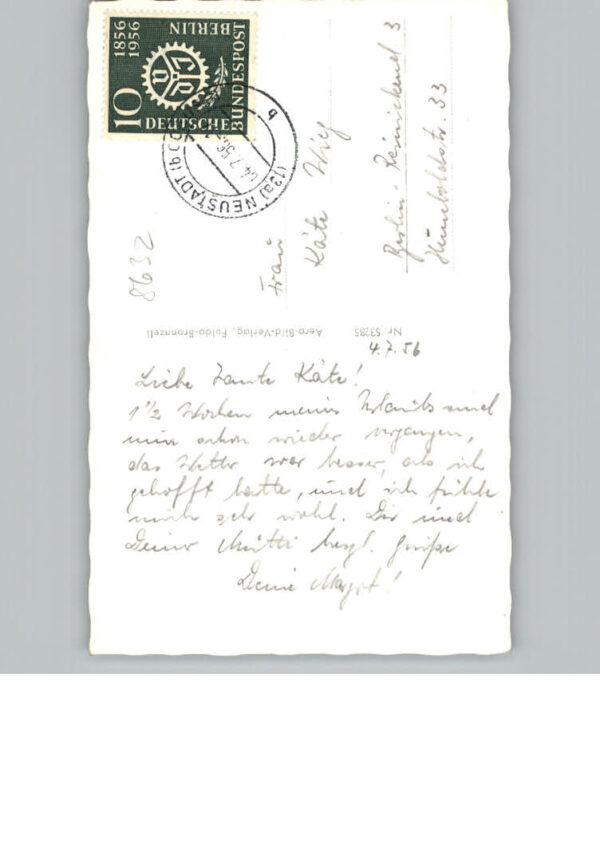 10
1856
1956
DEUTSCHE
BUNDESPOST
BERLIN
(13a) NEUSTADT (b CO
-4.7.56
b
Frau
Käte
Berlin-Reinickend 3
Humboldtstr. 33
8632
Aero-Bild-Verlag, Fulda-Bronnzell Nr 53285
4.7.56
Liebe Tante Käte!
1½ Wochen meines Urlaubs sind
nun schon wieder vergangen,
das Wetter war besser, als ich
gehofft hatte, und ich fühle
mich sehr wohl. Dir und
Deiner Mutti herzl. Grüße
Deine Margot!